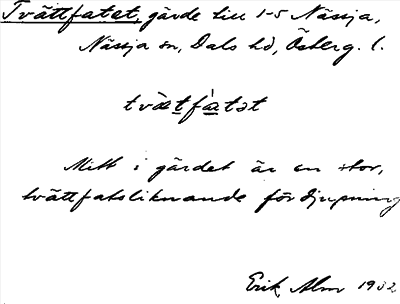 Tvättfatet, gärde till 1-5 Nässja,
Nässja sn, Dals hd, Österg. l.
tvæt̲fæ̲̀tət
Mitt i gärdet är en stor,
tvättfatsliknande fördjupning
Erik Alm 1932